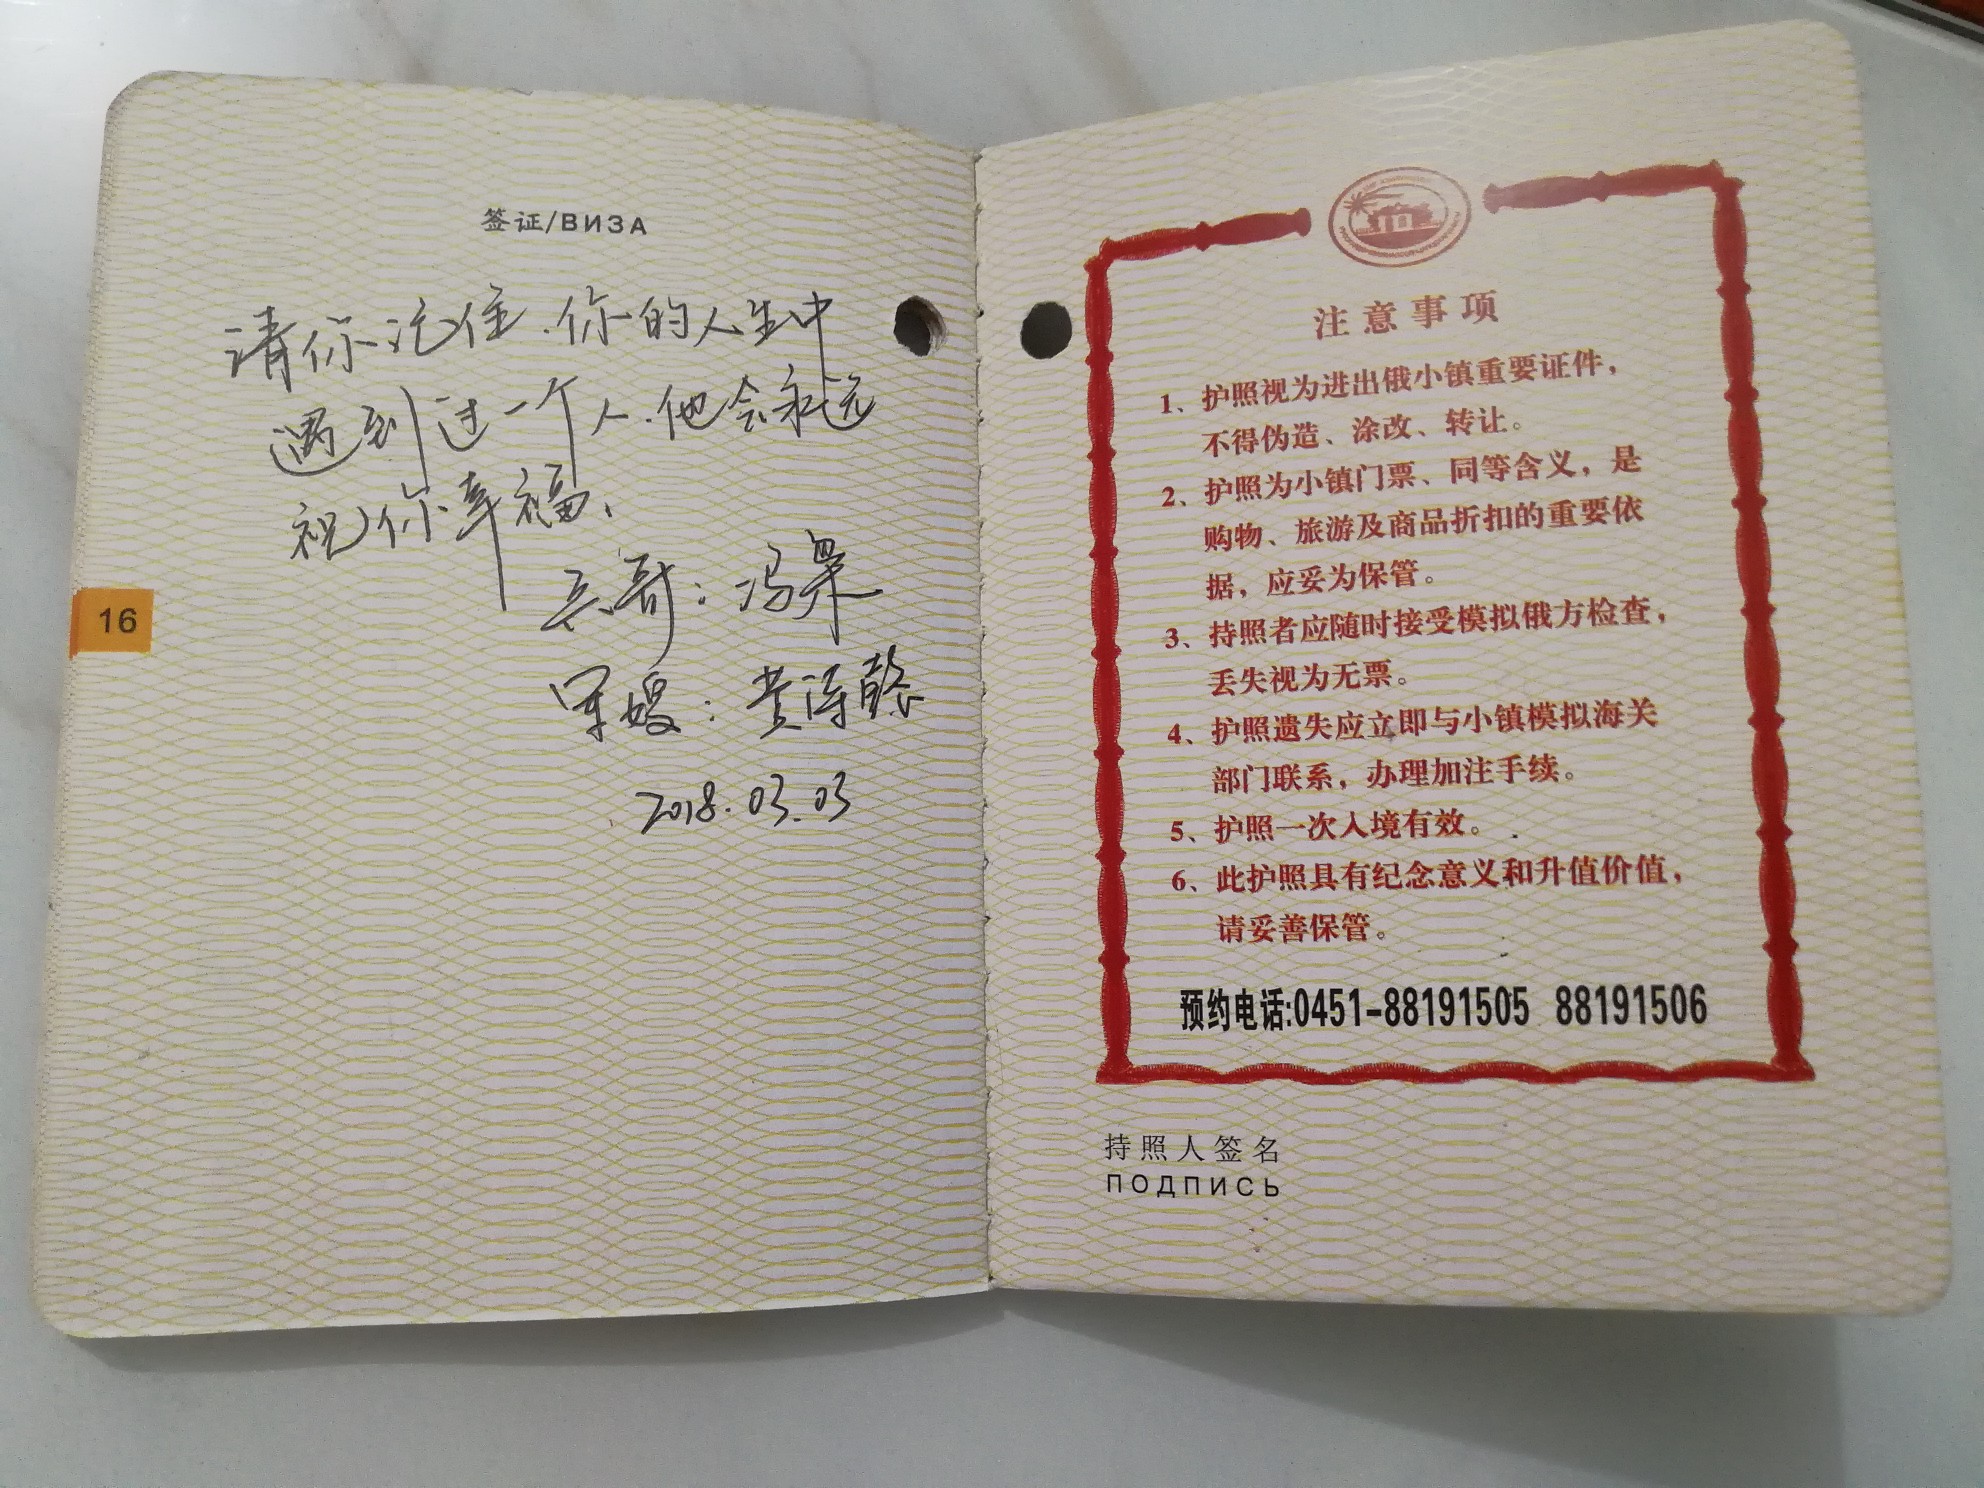 签证/ВИЗА
请你记住.你的人生中
遇到过一个人.他会永远
祝你幸福、
兵哥：冯果
军嫂：黄诗
2018.03.03
16
注意事项
1、护照视为进出俄小镇重要证件，
不得伪造、涂改、转让。
2、护照为小镇门票、同等含义，是
购物、旅游及商品折扣的重要依
据，应妥为保管。
3、持照者应随时接受模拟俄方检查，
丢失视为无票。
4、护照遗失应立即与小镇模拟海关
部门联系，办理加注手续。
5、护照一次入境有效。
6、此护照具有纪念意义和升值价值，
请妥善保管。
预约电话:0451-88191505 88191506
持照人签名
ПОДПИСЬ